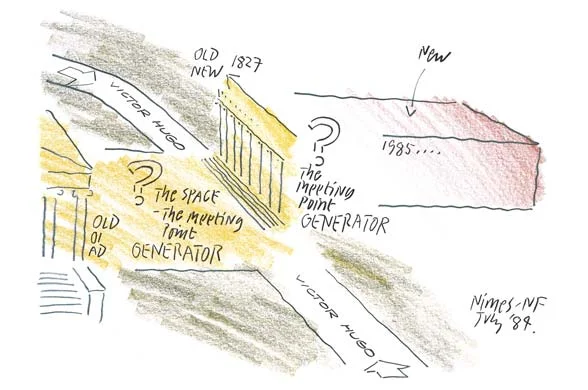 OLD
NEW 1827
New
VICTOR HUGO
?
1985....
?
The
meeting
Point
GENERATOR
The SPACE
- The meeting
Point
GENERATOR
OLD
01
AD
VICTOR HUGO
Nimes-NF
July '84.